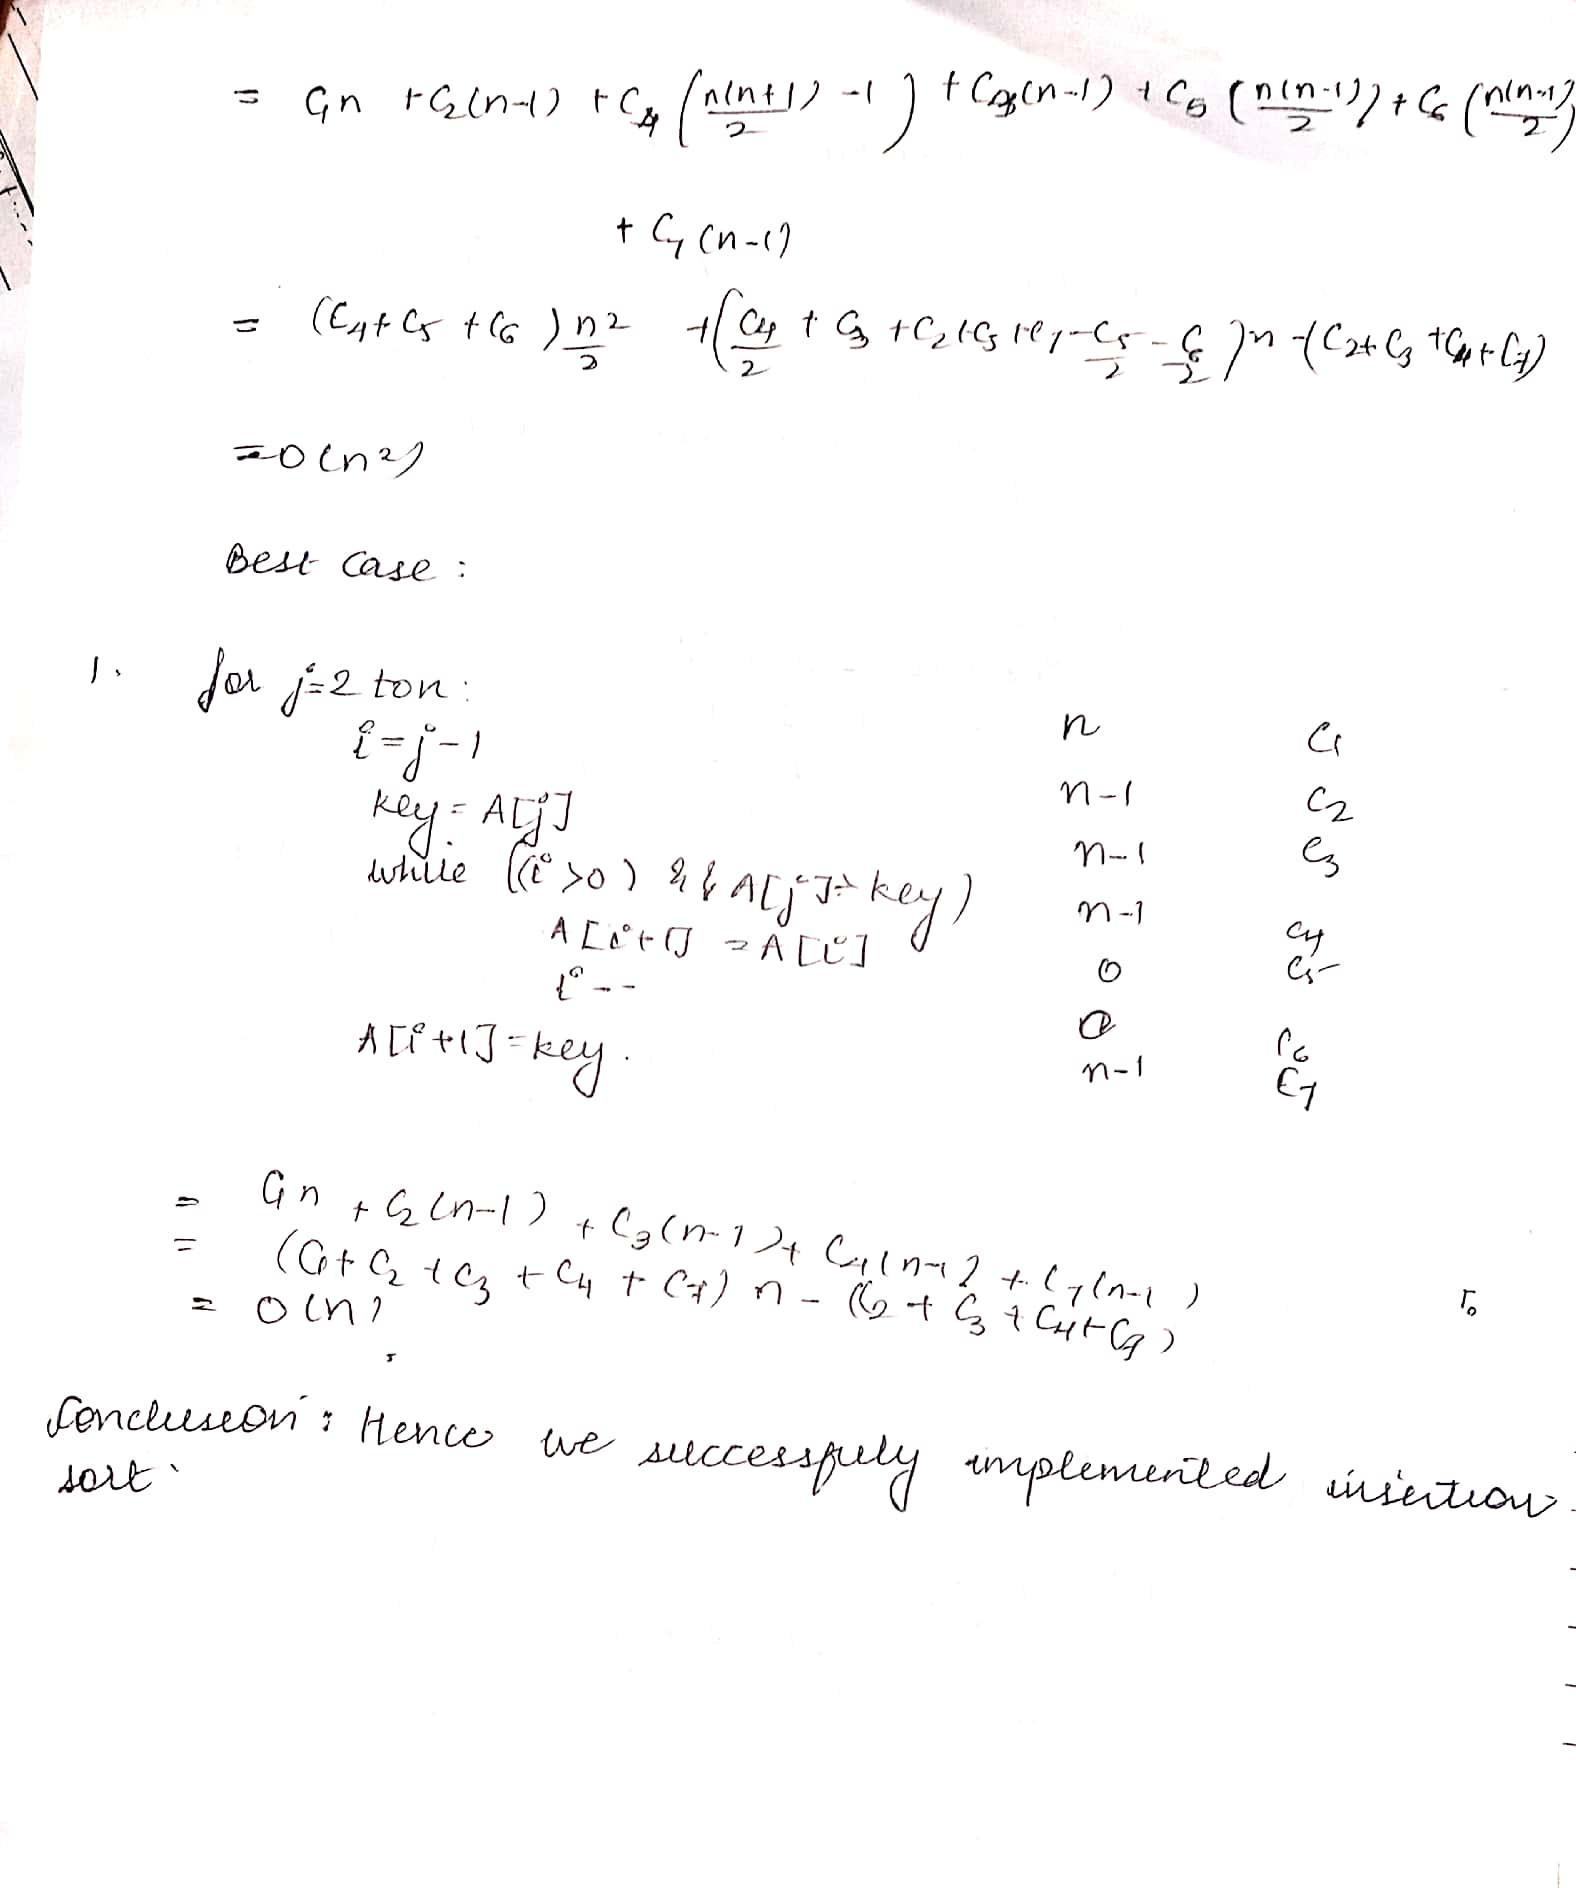 = C₁n + C₂(n-1) + C₄ (n(n+1)/2 - 1) + C₃(n-1) + C₅ (n(n-1)/2) + C₆ (n(n-1)/2)
+ C₇ (n-1)
= (C₄ + C₅ + C₆) n²/2 + (C₄/2 + C₃ + C₂ + C₃ + C₁ - C₅/2 - C₆/2) n - (C₂ + C₃ + C₄ + C₇)
= O(n²)
Best Case :
1. for j=2 to n :
i = j-1 n C₁
key = A[j] n-1 C₂
while ((i >0) && A[j] > key) n-1 C₃
A[i+1] = A[i] n-1 C₄
i-- 0 C₅
A[i+1] = key. 0 C₆
n-1 C₇
= C₁n + C₂(n-1) + C₃(n-1) + C₄(n-1) + C₇(n-1)
= (C₁ + C₂ + C₃ + C₄ + C₇) n - (C₂ + C₃ + C₄ + C₇)
= O(n)
Conclusion : Hence we successfuly implemented insertion
sort.